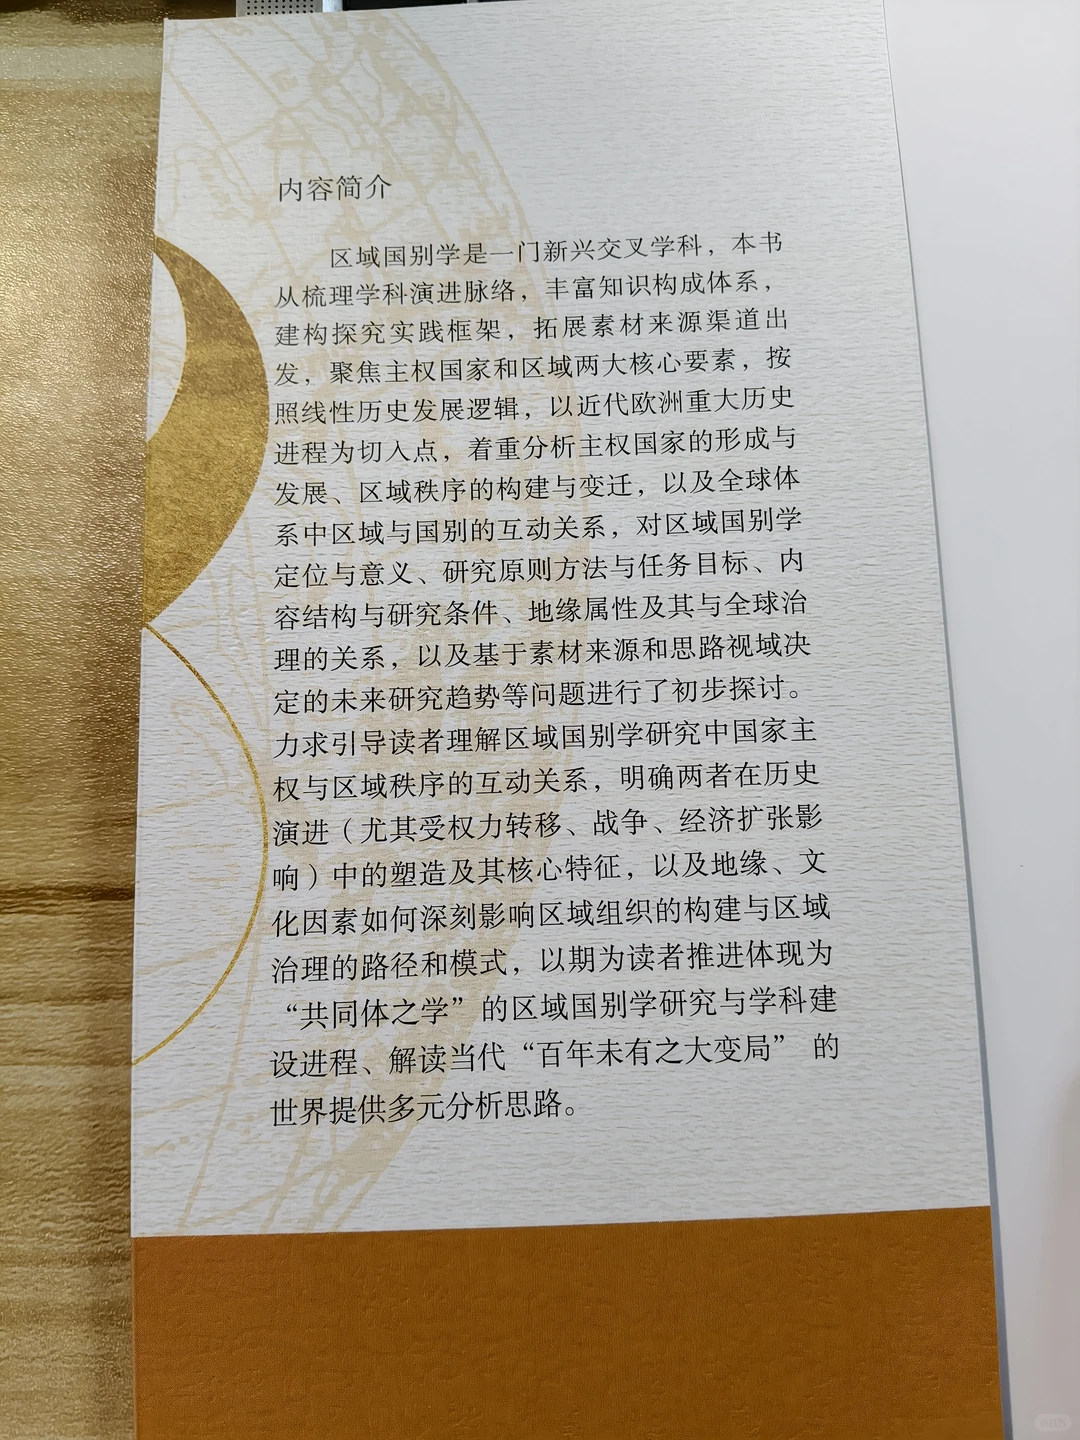 内容简介
区域国别学是一门新兴交叉学科，本书
从梳理学科演进脉络，丰富知识构成体系，
建构探究实践框架，拓展素材来源渠道出
发，聚焦主权国家和区域两大核心要素，按
照线性历史发展逻辑，以近代欧洲重大历史
进程为切入点，着重分析主权国家的形成与
发展、区域秩序的构建与变迁，以及全球体
系中区域与国别的互动关系，对区域国别学
定位与意义、研究原则方法与任务目标、内
容结构与研究条件、地缘属性及其与全球治
理的关系，以及基于素材来源和思路视域决
定的未来研究趋势等问题进行了初步探讨。
力求引导读者理解区域国别学研究中国家主
权与区域秩序的互动关系，明确两者在历史
演进（尤其受权力转移、战争、经济扩张影
响）中的塑造及其核心特征，以及地缘、文
化因素如何深刻影响区域组织的构建与区域
治理的路径和模式，以期为读者推进体现为
“共同体之学”的区域国别学研究与学科建
设进程、解读当代“百年未有之大变局” 的
世界提供多元分析思路。